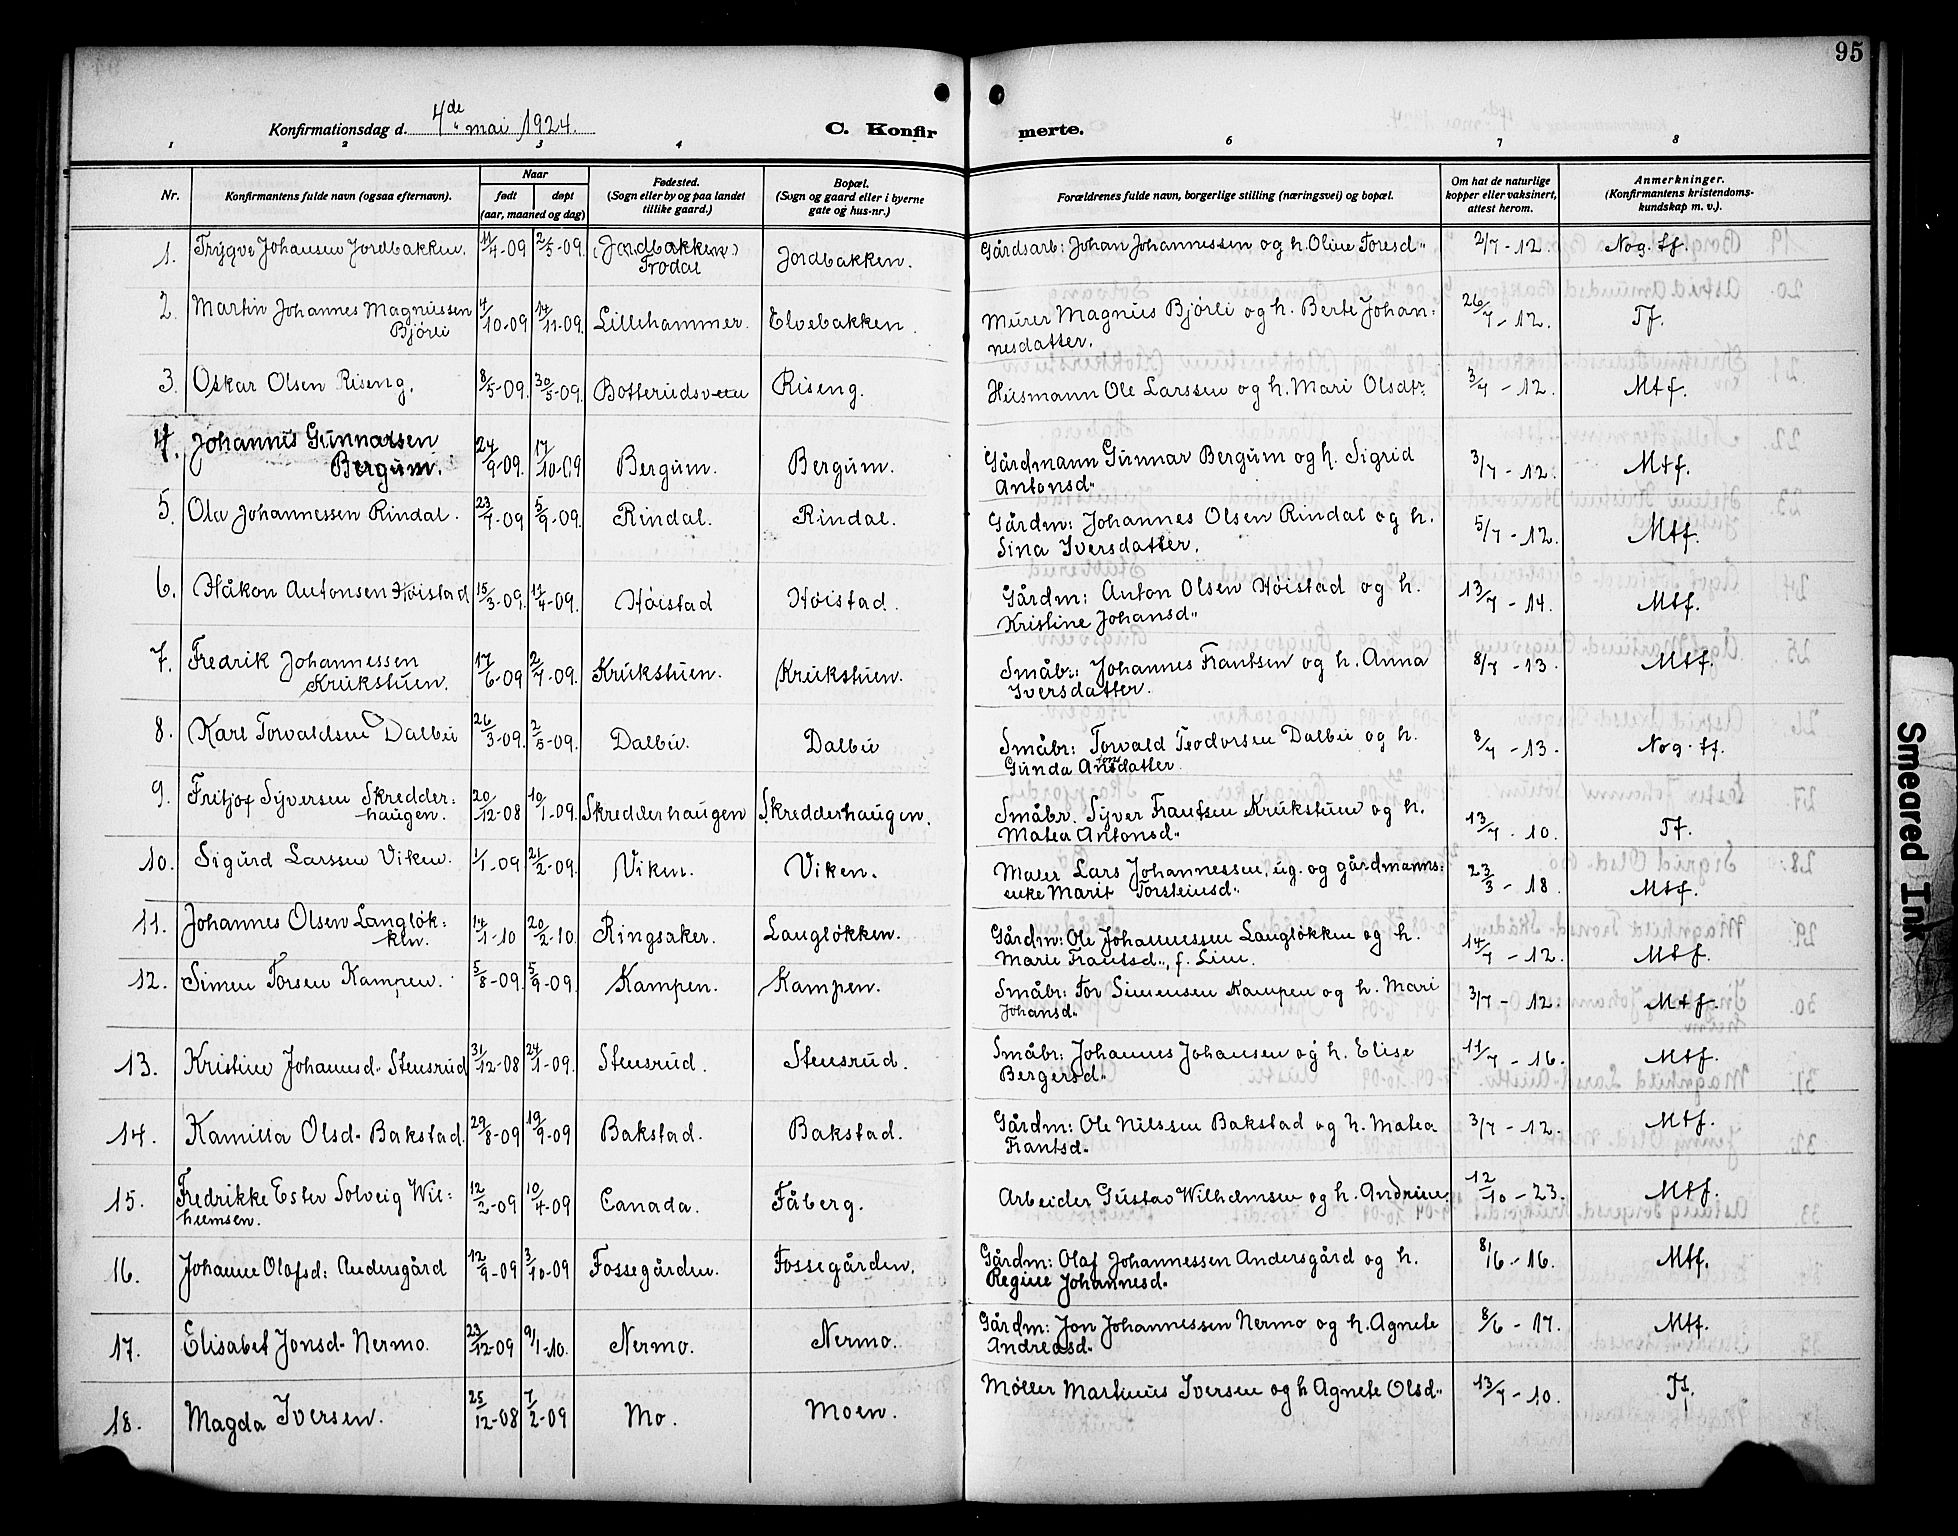 95
Konfirmationsdag d. 4de mai 1924.
C. Konfirmerte.
1 2 3 4 6 7 8
Nr. | Konfirmantens fulde navn (ogsaa efternavn). | Naar født døpt (aar, maaned og dag) | Fødested. (Sogn eller by og paa landet tillike gaard.) | Bopæl. (Sogn og gaard eller i byerne gate og hus-nr.) | Forældrenes fulde navn, borgerlige stilling (næringsvei) og bopæl. | Om hat de naturlige kopper eller vaksinert, attest herom. | Anmerkninger. (Konfirmantens kristendoms-kundskap m. v.).
1. Trygve Johansen Jordbakken. 11/4-09 2/5-09. (Jordbakken) Frodal Jordbakken. Gårdsarb: Johan Johannessen og h. Oline Toresd" 2/7-12. Nog. tf.
2. Martin Johannes Magnussen Bjørli 4/10-09 14/11-09. Lillehammer. Elvebakken. Murer Magnus Bjørli og h. Berte Johannesdatter. 26/7-12. Tf.
3. Oskar Olsen Riseng. 8/5-09. 30/5-09. Botterudsveen Riseng. Husmann Ole Larssen og h. Mari Olsdtr. 3/7-12. Mtf.
4. Johannes Gunnarsen Bergum. 24/9-09. 17/10-09 Bergum. Bergum. Gårdmann Gunnar Bergum og h. Sigrid Antonsd" 3/7-12. Mtf.
5. Ola Johannessen Rindal. 23/7-09 5/9-09. Rindal. Rindal. Gårdm: Johannes Olsen Rindal og h. Sina Iversdatter. 5/7-12. Mtf.
6. Håkon Antonsen Høistad 15/3-09. 17/4-09. Høistad Høistad. Gårdm: Anton Olsen Høistad og h. Kristine Johansd" 13/7-14. Mtf.
7. Fredrik Johannessen Krukstuen. 17/6-09 2/7-09. Krukstuen. Krukstuen. Småbr: Johannes Frantsen og h. Anna Iversdatter. 8/7-13. Mtf.
8. Karl Torvaldsen Dalbu 26/3-09. 2/5-09. Dalbu. Dalbu Småbr: Torvald Teodorsen Dalbu og h. Gunda Antonsdatter. 8/7-13. Nog. tf.
9. Fritjof Syversen Skredderhaugen. 20/12-08 10/1-09. Skredderhaugen Skredderhaugen. Småbr. Syver Frantsen Krukstuen og h. Matea Antonsd" 13/7-10. Tf.
10. Sigurd Larssen Viken. 1/1-09 21/2-09. Viken. Viken. Maler Lars Johannessen, ug. og gårdmanns-enke Marit Torsteinsd" 23/3-18. Mtf.
11. Johannes Olsen Langløkken. 14/1-10 20/2-10. Ringsaker. Langløkken. Gårdm: Ole Johannessen Langløkken og h. Marie Frantsd", f. Lien. 14/7-12. Mtf.
12. Simen Torsen Kampen. 5/8-09. 5/9-09. Kampen. Kampen. Småbr: Tor Simensen Kampen og h. Mari Johansd" 3/7-12 Mtf.
13. Kristine Johannsd. Stensrud 31/12-08 24/1-09. Stensrud. Stensrud. Småbr: Johannes Johansen og h. Elise Bergersd" 11/7-16. Mtf.
14. Kamilla Olsd. Bakstad. 29/8-09 19/9-09 Bakstad. Bakstad. Gårdm: Ole Nilssen Bakstad og h. Matea Frantsd. 3/7-12. Mtf.
15. Fredrikke Ester Solveig Wilhelmsen. 12/2-09 10/4-09 Canada. Fåberg. Arbeider Gustav Wilhelmsen og h. Andrine. 12/10-23. Mtf.
16. Johanne Olafsd: Andersgård 12/9-09 3/10-09 Fossegården. Fossegården. Gårdm: Olaf Johannessen Andersgård og h. Regine Johannesd. 8/6-16. Mtf.
17. Elisabet Jonsd. Nermo. 23/12-09 9/1-10. Nermo. Nermo. Gårdm: Jon Johannessen Nermo og h. Agnete Andreasd. 8/6-17. Mtf.
18. Magda Iversen. 25/12-08 7/2-09 Mo. Moen. Møller Martinus Iversen og h Agnete Olsd" 13/7-10. Tf.
Smeared Ink